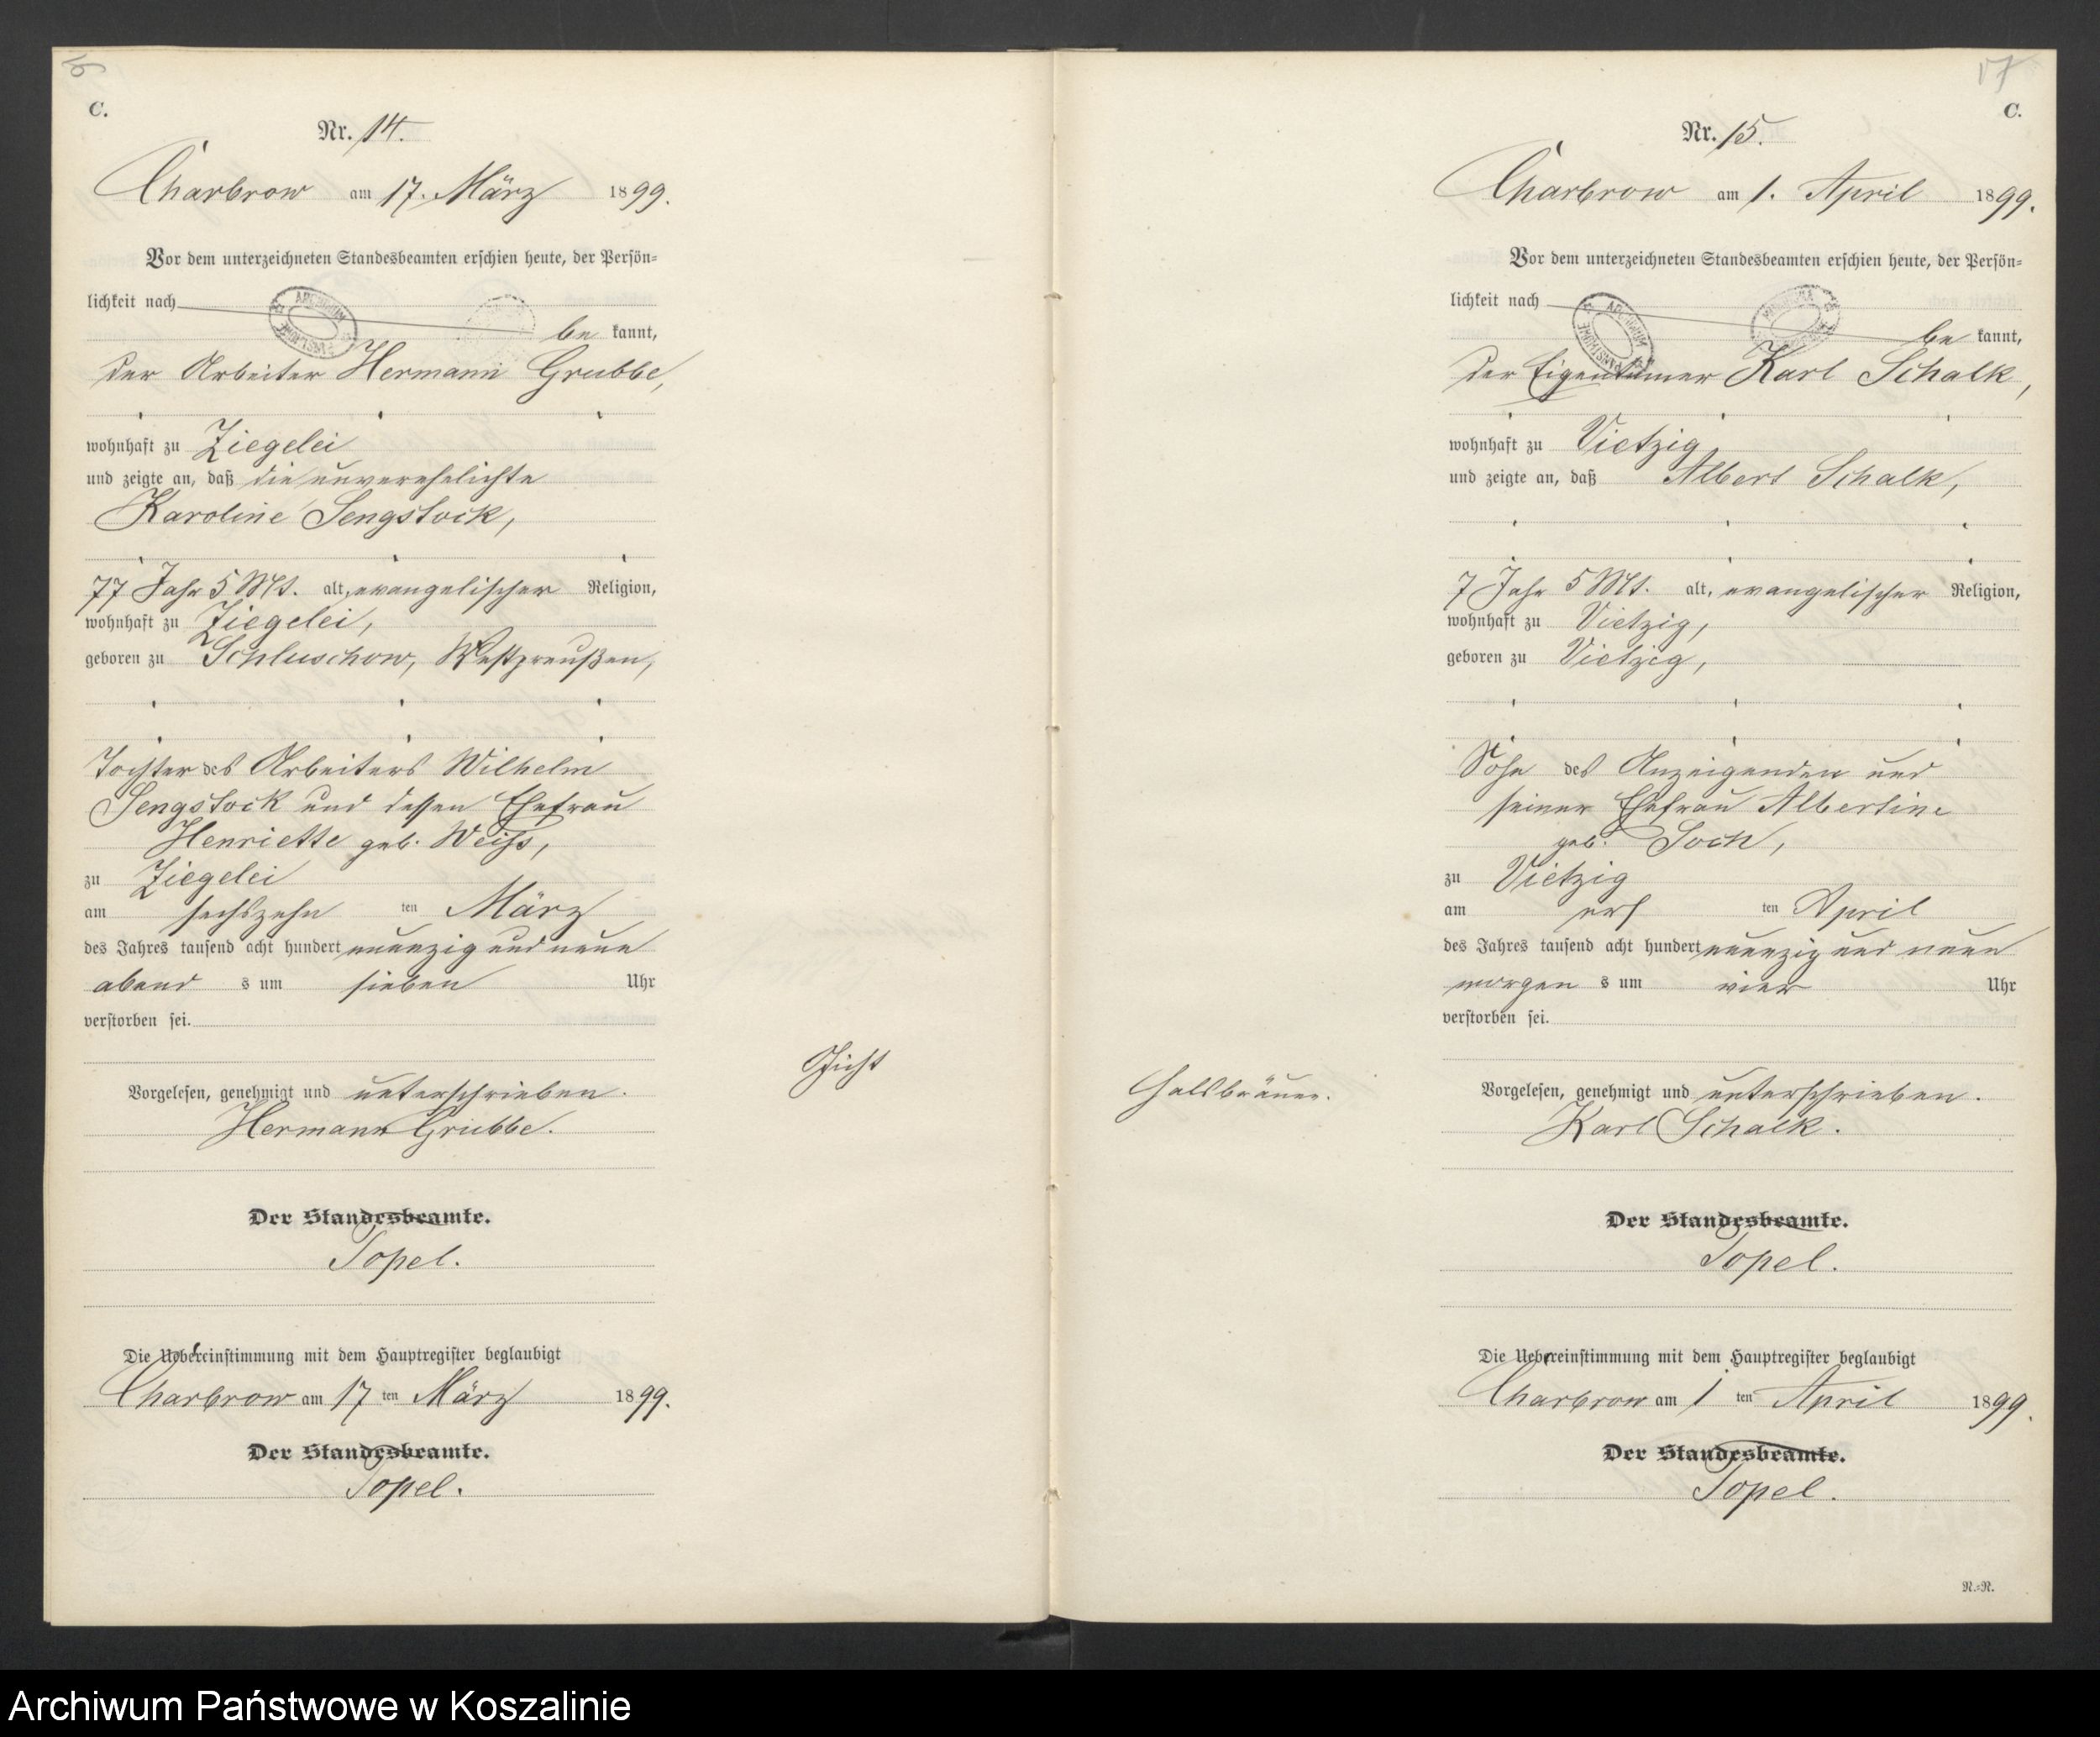 C.
Nr. 14.
Charbrow am 17. März 1899.
Vor dem unterzeichneten Standesbeamten erschien heute, der Persön-
lichkeit nach
be kannt,
der Arbeiter Hermann Grubbe,
wohnhaft zu Ziegelei
und zeigte an, daß die unverehelichte
Karoline Sengstock,
77 Jahr 5 Mt. alt, evangelischer Religion,
wohnhaft zu Ziegelei,
geboren zu Schluschow, Westpreußen,
Tochter des Arbeiters Wilhelm
Sengstock und dessen Ehefrau
Henriette geb. Weiss,
zu Ziegelei
am sechszehn ten März
des Jahres tausend acht hundert neunzig und neun
abend s um sieben Uhr
verstorben sei.
Vorgelesen, genehmigt und unterschrieben.
Hermann Grubbe.
Der Standesbeamte.
Topel.
Die Uebereinstimmung mit dem Hauptregister beglaubigt
Charbrow am 17 ten März 1899.
Der Standesbeamte.
Topel.
Gicht
17
C.
Nr. 15.
Charbrow am 1. April 1899.
Vor dem unterzeichneten Standesbeamten erschien heute, der Persön-
lichkeit nach
be kannt,
der Eigentümer Karl Schalk,
wohnhaft zu Vietzig
und zeigte an, daß Albert Schalk,
7 Jahr 5 Mt. alt, evangelischer Religion,
wohnhaft zu Vietzig,
geboren zu Vietzig,
Sohn des Anzeigenden und
seiner Ehefrau Albertine
geb. Soch,
zu Vietzig
am ers ten April
des Jahres tausend acht hundert neunzig und neun
morgen s um vier Uhr
verstorben sei.
Halsbräune.
Vorgelesen, genehmigt und unterschrieben.
Karl Schalk.
Der Standesbeamte.
Topel.
Die Uebereinstimmung mit dem Hauptregister beglaubigt
Charbrow am 1 ten April 1899.
Der Standesbeamte.
Topel.
N.=N.
Archiwum Państwowe w Koszalinie